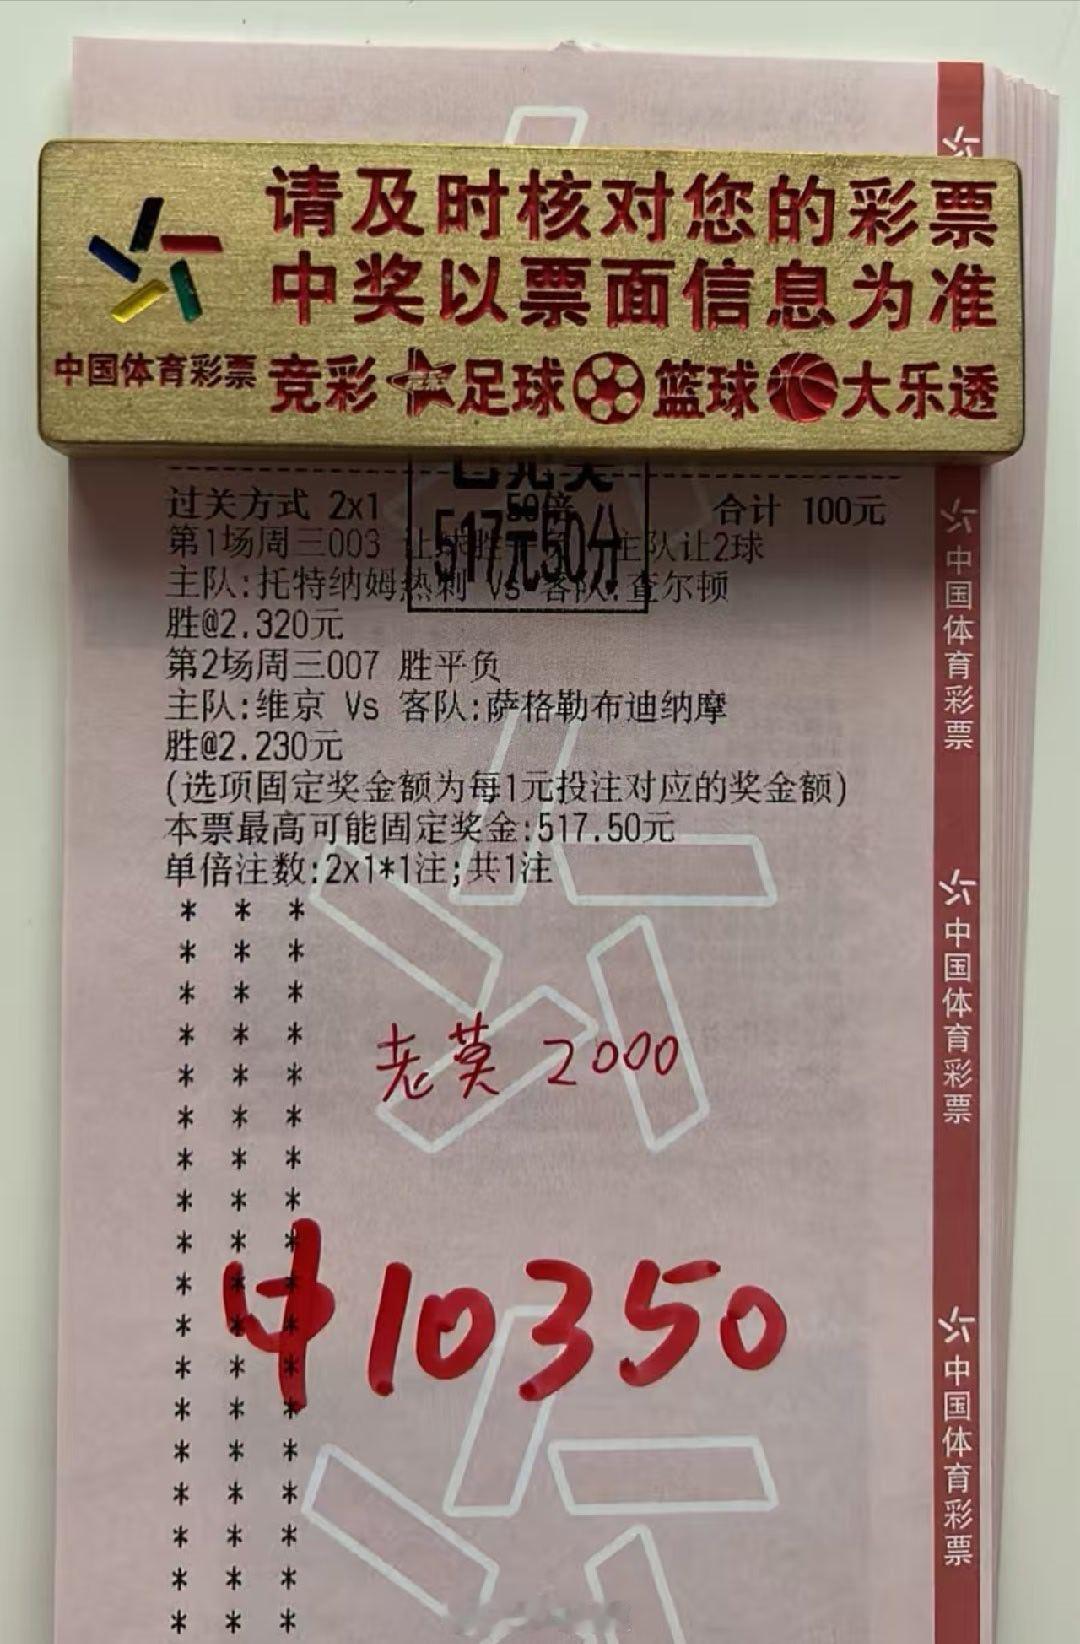 请及时核对您的彩票
中奖以票面信息为准
中国体育彩票 竞彩 足球 篮球 大乐透
已兑奖
517元50分
过关方式 2x1 50倍 合计 100元
第1场周三003 让球胜 主队让2球
主队:托特纳姆热刺 Vs 客队:查尔顿
胜@2.320元
第2场周三007 胜平负
主队:维京 Vs 客队:萨格勒布迪纳摩
胜@2.230元
(选项固定奖金额为每1元投注对应的奖金额)
本票最高可能固定奖金:517.50元
单倍注数:2x1*1注;共1注
* * *
* * *
* * *
* * *
* * *
* * *
* * *
* * *
* * *
* * *
* * *
* * *
* * *
* * *
* * *
* * *
* * *
* * *
老莫 2000
中10350
中国体育彩票
中国体育彩票
中国体育彩票